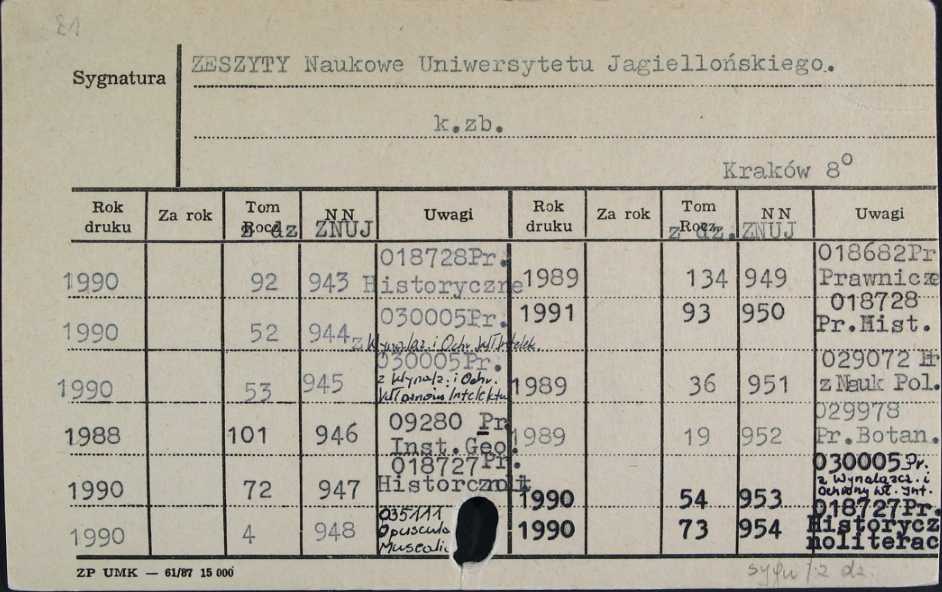 81
Sygnatura
ZESZYTY Naukowe Uniwersytetu Jagiellońskiego.
k.zb.
Kraków 8°
Rok druku Za rok Tom Rocz. z dz NN ZNUJ Uwagi Rok druku Za rok Tom Rocz. z dz. NN ZNUJ Uwagi
1990 92 943 018728Pr. Historyczne 1989 134 949 018682Pr Prawnicze
1990 52 944 030005Pr. z Wynalaz. i Ochr. Wł. Intelek. 1991 93 950 018728 Pr.Hist.
1990 53 945 030005Pr. z Wynalz. i Ochr. Własności Intelektu 1989 36 951 029072 Pr z Nauk Pol.
1988 101 946 09280 Pr Inst.Geo. 1989 19 952 029978 Pr.Botan.
1990 72 947 018727 Pr. Historcznolit 1990 54 953 030005Pr. z Wynalazcz. i Ochrony Wł. Int.
1990 4 948 035111 Opuscula Musealia 1990 73 954 018727Pr. Historycz noliterac
ZP UMK — 61/87 15 000
sygn / z dz.